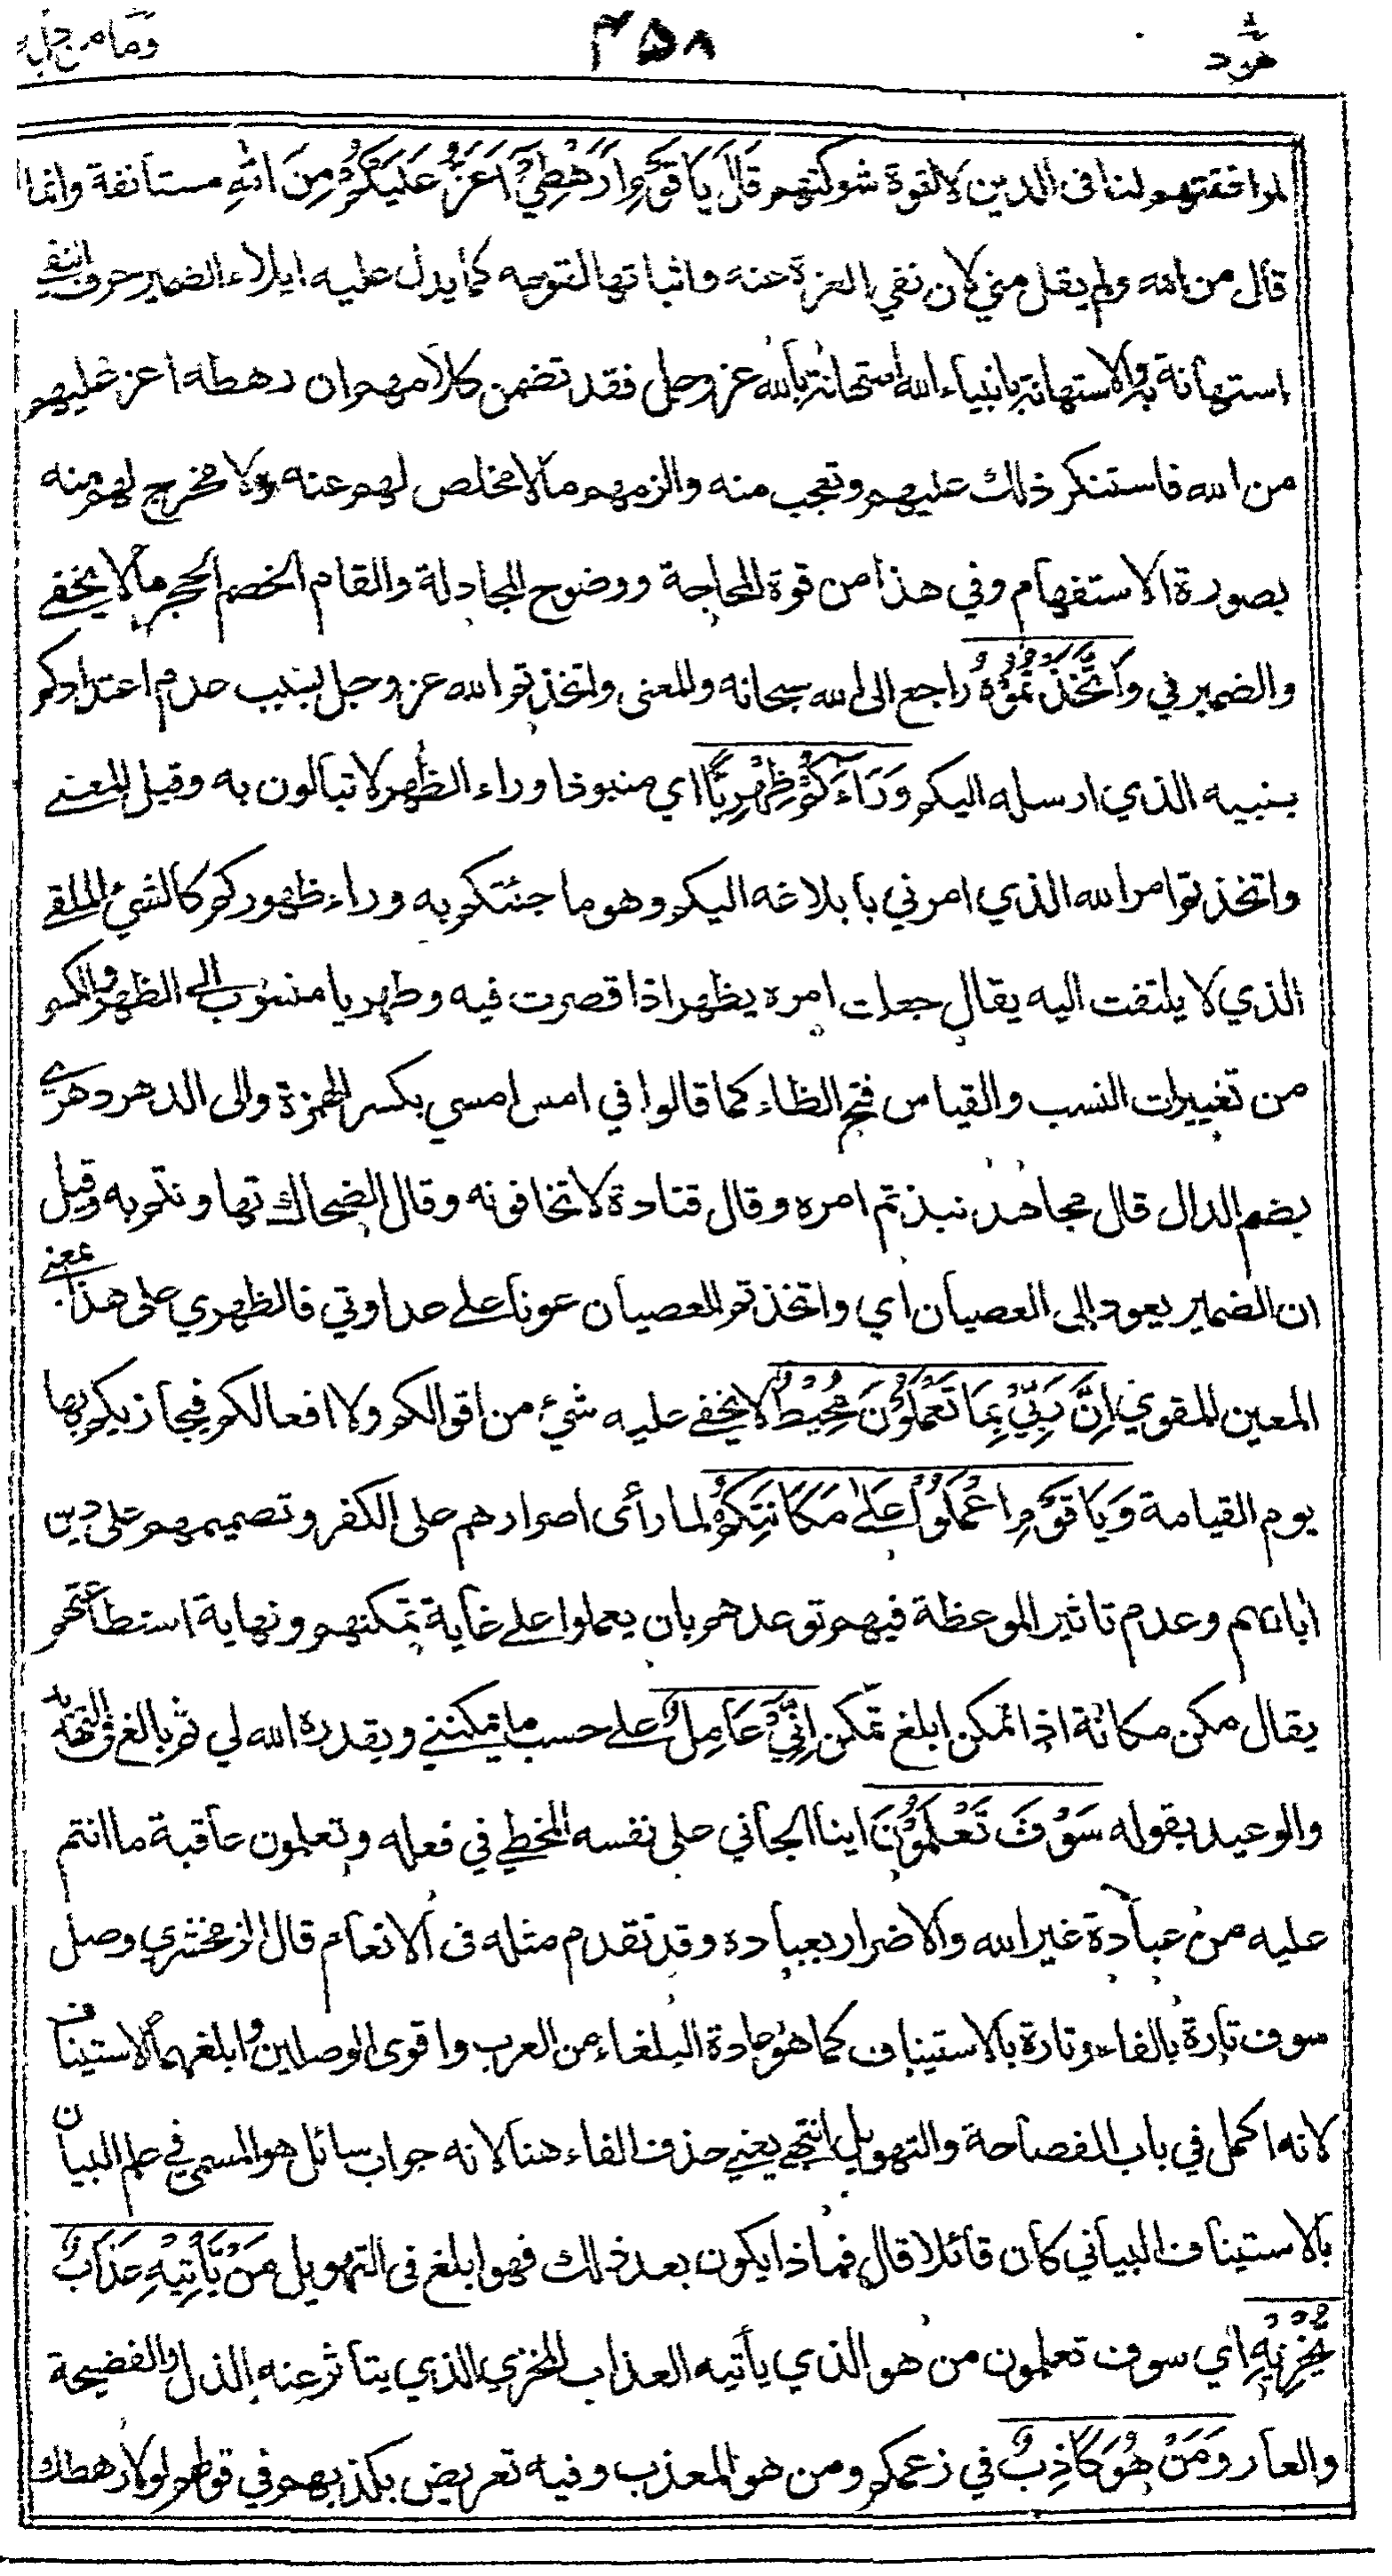 هود
٣٥٨
وما من دابة
لموافقتهم لنا في الدين لا لقوة شوكتهم قَالَ يَا قَوْمِ أَرَهْطِيْ أَعَزُّ عَلَيْكُمْ مِنَ اللهِ مستأنفة وانما
قال من الله ولم يقل مني لان نفي العزة عنه واثباتها لقومه كما يدل عليه ايلاء الضمير حرف النفي
استهانة به والاستهانة بانبياء الله استهانة بالله عز وجل فقد تضمن كلامهم ان رهطه اعز عليهم
من الله فاستنكر ذلك عليهم وتعجب منه والزمهم مالا مخلص لهم عنه ولا مخرج لهم منه
بصورة الاستفهام وفي هذا من قوة المحاجة ووضوح المجادلة والقام الخصم الحجر مالا يخفى
والضمير في وَاتَّخَذْتُمُوْهُ راجع الى الله سبحانه والمعنى واتخذتم الله عز وجل بسبب عدم اعتدادكم
بنبيه الذي ارسله اليكم وَرَاءَكُمْ ظِهْرِيًّا اي منبوذا وراء الظهر لا تبالون به وقيل المعنى
واتخذتم امر الله الذي امرني بابلاغه اليكم وهو ما جئتكم به وراء ظهوركم كالشئ الملقى
الذي لا يلتفت اليه يقال جعلت امره بظهر اذا قصرت فيه وظهريا منسوب الى الظهر والكسر
من تغييرات النسب والقياس فتح الظاء كما قالوا في امس امسي بكسر الهمزة والى الدهر دهري
بضم الدال قال مجاهد نبذتم امره وقال قتادة لا تخافونه وقال الضحاك تهاونتم به وقيل
ان الضمير يعود الى العصيان اي واتخذتم العصيان عونا على عداوتي فالظهري على هذا بمعنى
المعين المقوي إِنَّ رَبِّيْ بِمَا تَعْمَلُوْنَ مُحِيْطٌ لا يخفى عليه شئ من اقوالكم ولا افعالكم فيجازيكم بها
يوم القيامة وَيَا قَوْمِ اعْمَلُوْا عَلَىٰ مَكَانَتِكُمْ لما رأى اصرارهم على الكفر وتصميمهم على دين
آبائهم وعدم تاثير الموعظة فيهم توعدهم بان يعملوا على غاية تمكنهم ونهاية استطاعتهم
يقال مكن مكانة اذا تمكن ابلغ تمكن إِنِّيْ عَامِلٌ على حسب ما يمكنني ويقدره الله لي ثم بالغ في التهديد
والوعيد بقوله سَوْفَ تَعْلَمُوْنَ اينا الجاني على نفسه المخطي في فعله وتعلمون عاقبة ما انتم
عليه من عبادة غير الله والاضرار بعباده وقد تقدم مثله في الانعام قال الزمخشري وصل
سوف تارة بالفاء وتارة بالاستيناف كما هو عادة البلغاء من العرب واقوى الوصلين وابلغهما الاستيناف
لانه اكمل في باب الفصاحة والتهويل انتهى يعني حذف الفاء هنا لانه جواب سائل هو المسمى في علم البيان
بالاستيناف البياني كان قائلا قال فماذا يكون بعد ذلك فهو ابلغ في التهويل مَنْ يَّأْتِيْهِ عَذَابٌ
يُّخْزِيْهِ اي سوف تعلمون من هو الذي يأتيه العذاب المخزي الذي يتأثر عنه الذل والفضيحة
والعار وَمَنْ هُوَ كَاذِبٌ في زعمكم ومن هو المعذب وفيه تعريض بكذبهم في قولهم لولا رهطك